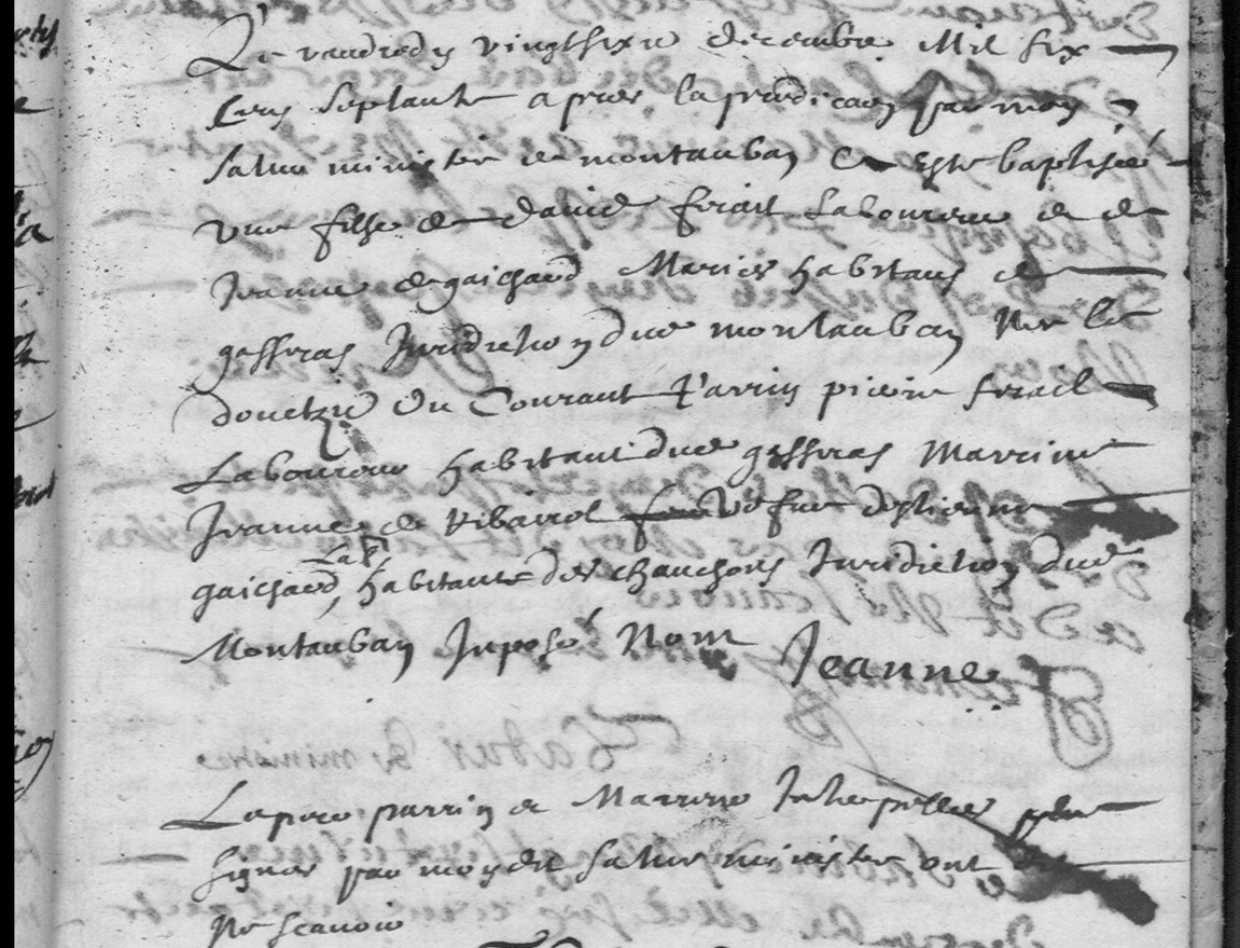 Le vandredy vingtsixie decembre Mil six
Cens Septante apres la predicaon par moy
Satur ministre de montauban a este baptisée
une fille de david serail Laboureur et de
Jeanne de gaichaud Mariés habitans de
gasseras Juridiction dud montauban Nee le
douctzie du Courant Parrin pierre serail
Laboureur habitant dud gasseras Marrine
Jeanne de vefue destienne
gaichaud, habitante des chauchoins Juridiction dud
Montauban Imposé Nom Jeanne
Le pere parrin et Marrine Interpelles
signer par moydit Satur ministre ont dit
Ne scavoir